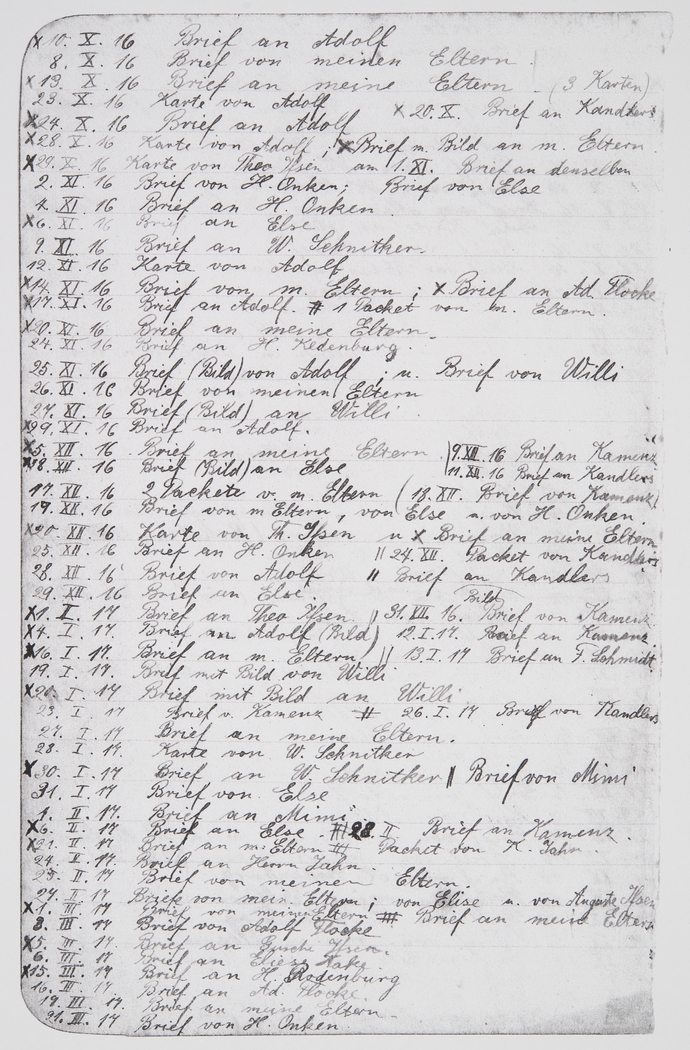 x10. X. 16 Brief an Adolf
8. X. 16 Brief von meinen Eltern.
x13. X. 16 Brief an meine Eltern. (3 Karten)
23. X. 16 Karte von Adolf x 20. X. Brief an Kandlers
x24. X. 16 Brief an Adolf
x28. X. 16 Karte von Adolf; x Brief m. Bild an m. Eltern
x29. X. 16 Karte von Theo Ifsen am 1. XI. Brief an denselben
2. XI. 16 Brief von H. Onken; Brief von Else
4. XI. 16 Brief an H. Onken
x6. XI. 16 Brief an Else
9. XI. 16 Brief an W. Schnitker
12. XI. 16 Karte von Adolf
x14. XI. 16 Brief von m. Eltern; x Brief an Ad. Flocke
x17. XI. 16 Brief an Adolf. # 1 Packet von m. Eltern.
x20. XI. 16 Brief an meine Eltern.
24. XI. 16 Brief an H. Redenburg.
25. XI. 16 Brief (Bild) von Adolf; u. Brief von Willi
26. XI. 16 Brief von meinen Eltern
27. XI. 16 Brief (Bild) an Willi
x29. XI. 16 Brief an Adolf.
x5. XII. 16 Brief an meine Eltern. | 9. XII. 16 Brief an Kamenz
x18. XII. 16 Brief (Bild) an Else | 11. XII. 16 Brief an Kandlers
17. XII. 16 2 Packete v. m. Eltern (13. XII. Brief von Kamenz)
19. XII. 16 Brief von m Eltern, von Else u. von H. Onken
x20. XII. 16 Karte von Th. Ifsen u x Brief an meine Eltern
25. XII 16 Brief an H. Onken || 24. XII. Packet von Kandlers
28. XII. 16 Brief von Adolf || Brief an Kandlers
29. XII. 16 Brief an Else. Bild
x1. I. 17 Brief an Theo Ifsen || 31. XII. 16. Brief von Kamenz
x4. I. 17 Brief an Adolf (Bild) 12. I. 17. Brief an Kamenz
x16. I. 17. Brief an m. Eltern || 13. I. 17 Brief an T. Schmidt
19. I. 17 Brief mit Bild von Willi
x20. I. 17 Brief mit Bild an Willi
23. I 17 Brief v. Kamenz # 26. I. 17 Brief von Kandlers
27. I. 17 Brief an meine Eltern.
28. I. 17. Karte von W. Schnitker
x30. I. 17 Brief an W Schnitker || Brief von Mimi
31. I. 17 Brief von Else
1. II. 17. Brief an Mimi
x6. II. 17 Brief an Else. # 28. II Brief an Kamenz.
x21. II. 17 Brief an m. Eltern # Packet von K. Jahn.
24. II. 17. Brief an Herrn Jahn.
25. II. 17 Brief von meinen Eltern.
27. II. 17 Briefe von mein. Eltern; von Elise u. von Auguste Ifsen
x1. III. 17 Brief von meinen Eltern # Brief an meine Eltern
3. III. 17 Brief von Adolf Flocke
x5. III. 17 Brief an Ifsen.
6. III. 17 Brief an Eliese
x15. III. 17 Brief an H. Rodenburg
16. III. 17. Brief an Ad. Flocke.
19. III. 17. Brief an meine Eltern.
21. III. 17 Brief von H. Onken.